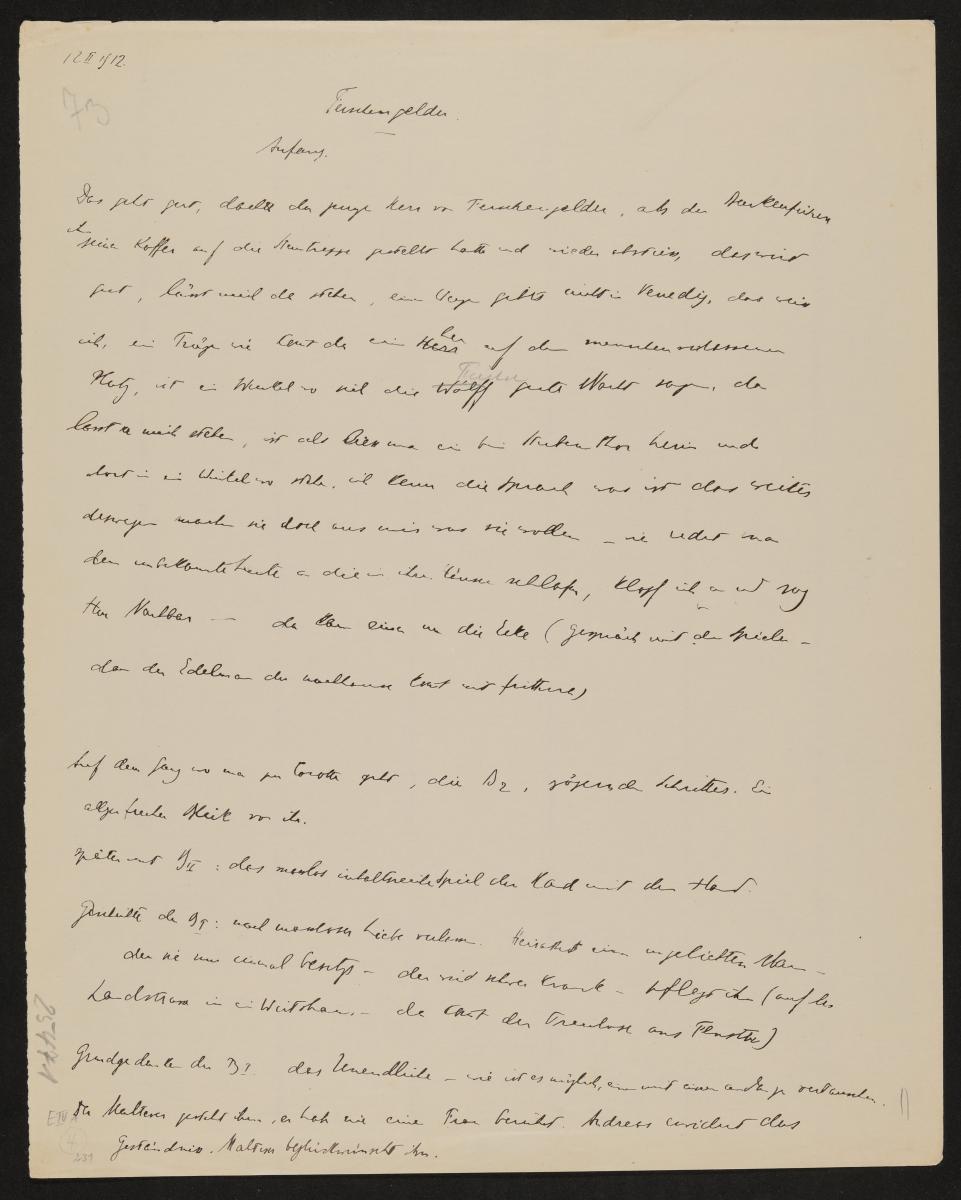 12 II 1912.
73
Ferschengelder.
Anfang.
Das geht gut, dachte der junge Herr von Ferschengelder, als der Barkenführer
ihm
seinen Koffer auf die Steintreppe gestellt hatte und wieder abstiess, das wird
gut, lässt mich da stehen, einen Wagen gibts nicht in Venedig, das weiss
ich, ein Träger wie kommt da einer her auf den menschenverlassenen
Platz, ist ein Winkel wo sich die Füchse gute Nacht sagen, da
lasst er mich stehen, ist als liesse man einen beim Stubenthor herein und
dort in ein Winkel wo stehn, ich kann die Sprach was ist das weiter
deswegen machen sie doch aus mir was sie wollen – wie redet man
denn unbekannte Leute an die in ihren Häusern schlafen, klopf ich an und sag
Herr Nachbar — da kam einer um die Ecke (Gespräch mit dem Spieler –
dann der Edelmann der nachhause kommt mit
Auf dem Gang wo man zur geht, die B2, zögernden Schrittes. Ein
allzu frecher Blick vor ihr.
später mit BII: das maslos inhaltreiche Spiel der Hand mit der Hand.
Geschichte der BI: nach massloser Liebe verlassen. Heirathet einen ungeliebten Mann –
den sie nur einmal besitzt – der wird schwer krank – pflegt ihn (auf der
Landstrasse in ein Wirtshaus – da kommt der Treulose ans Fenster)
Grundgedanken der BI. das Unendliche – wie ist es möglich, einen mit einem andern zu vertauschen.
Der Malteser gesteht ihm, er habe nie eine Frau berührt. Andreas erwidert das
Geständnis. Malteser beglückwünscht ihn.
E IV A
4
231